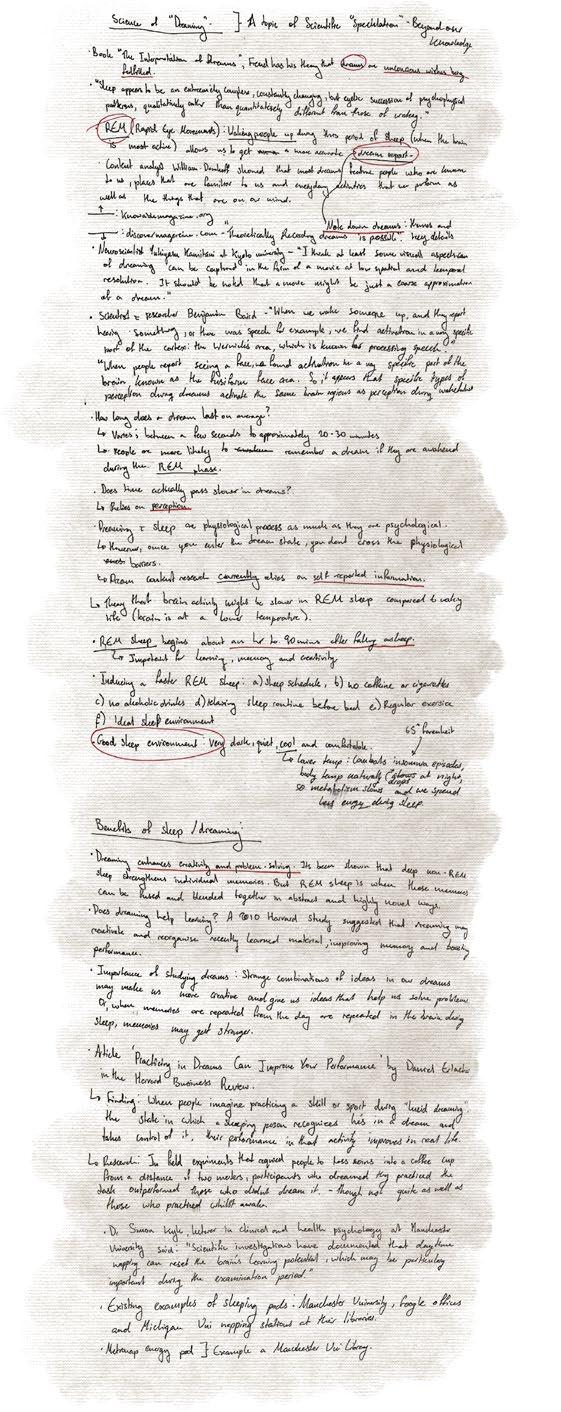 Science of "Dreaming". ] A topic of Scientific "Speculation" - Beyond our
knowledge
· Book "The Interpretation of Dreams", Freud has his theory that dreams are unconcious wishes being
fulfilled.
· "Sleep appears to be an extremely complex, constantly changing, but cyclic succession of psychophysical
patterns, qualitatively rather than quantitatively different from those of waking."
· REM (Rapid Eye Movements): Waking people up during this period of sleep (when the brain
is most active) allows us to get a more accurate dream report.
· Content analyst William Domhoff showed that most dreams feature people who are known
to us, places that are familiar to us and everyday activities that we perform as
well as the things that are on our mind.
: knowablemagazine.org
Note down dreams: themes and
key details
: discovermagazine.com - "Theoretically Recording dreams is possible.
· Neuroscientist Yukiyasu Kamitani at Kyoto university - "I think at least some visual aspects
of dreaming can be captured in the form of a movie at low spatial and temporal
resolution. It should be noted that a movie might be just a coarse approximation
of a dream."
· Scientist & researcher Benjamin Baird - "When we wake someone up, and they report
hearing something, or there was speech for example, we find activation in a very specific
part of the cortex: the Wernicke's area, which is known for processing speech."
"When people report seeing a face, we found activation in a very specific part of the
brain known as the fusiform face area. So it appears that specific types of
perception during dreams activate the same brain regions as perception during wakefulness
· How long does a dream last on average?
↳ Varies; between a few seconds to approximately 20-30 minutes
↳ People are more likely to remember a dream if they are awakened
during the REM phase.
· Does time actually pass slower in dreams?
↳ Relies on perception
· Dreaming & sleep are physiological process as much as they are psychological.
↳ However, once you enter the dream state, you dont cross the physiological
barriers.
↳ Dream content research currently relies on self reported information.
↳ Theory that brain activity might be slower in REM sleep compared to waking
life (brain is at a lower temperature).
· REM sleep begins about an hr to 90 mins after falling asleep.
↳ Important for learning, memory and creativity
· Inducing a faster REM sleep: a) Sleep schedule, b) no caffeine or cigarettes
c) no alcoholic drinks d) relaxing sleep routine before bed e) Regular exercise
f) Ideal sleep environment
65° farenheit
· Good sleep environment: Very dark, quiet, cool and comfortable.
↳ Lower temp: Controls insomnia episodes,
body temp naturally drops at night,
so metabolism slows and we spend
less energy during sleep.
Benefits of sleep / dreaming:
· Dreaming enhances creativity and problem-solving. Its been shown that deep non-REM
sleep strengthens individual memories. But REM sleep is when those memories
can be fused and blended together in abstract and highly novel ways.
· Does dreaming help learning? A 2010 Harvard Study suggested that dreaming may
reactivate and reorganise recently learned material, improving memory and boosting
performance.
· Importance of studying dreams: Strange combinations of ideas in our dreams
may make us more creative and give us ideas that help us solve problems
Or, when memories are repeated from the day are repeated in the brain during
sleep, memories may get stronger.
· Article 'Practicing in Dreams Can Improve Your Performance' by Daniel Erlacher
in the Harvard Business Review.
↳ Finding: When people imagine practicing a skill or sport during "lucid dreaming"
the state in which a sleeping person recognizes he's in a dream and
takes control of it, their performance in that activity improves in real life.
↳ Research: In field expriments that required people to toss coins into a coffee cup
from a distance of two meters, participants who dreamed they practiced the
task outperformed those who didnt dream it, - though not quite as well as
those who practiced whilst awake.
· Dr Simon Kyle, lecturer in clinical and health psychology at Manchester
University said: "Scientific investigations have documented that daytime
napping can reset the brain's learning potential, which may be particulary
important during the examination period."
· Existing examples of sleeping pods: Manchester University, Google offices
and Michigan Uni napping stations at their libraries.
· Metronap energy pod ] Example a Manchester Uni Library.